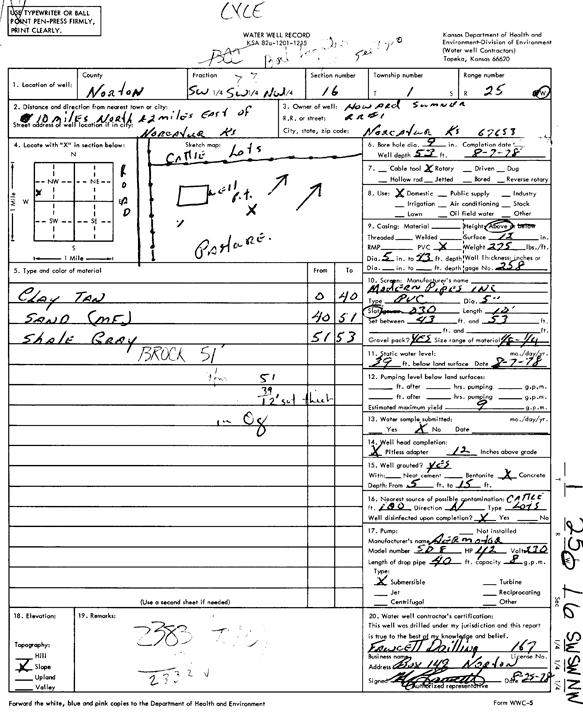 USE TYPEWRITER OR BALL
POINT PEN-PRESS FIRMLY,
PRINT CLEARLY.
WATER WELL RECORD
KSA 82a-1201-1215
Kansas Department of Health and
Environment-Division of Environment
(Water well Contractors)
Topeka, Kansas 66620
1. Location of well:
County
Norton
Fraction
SW 1/4 SW 1/4 NW 1/4
Section number
16
Township number
T 1 S
Range number
R 25 W
2. Distance and direction from nearest town or city:
10 miles North & 2 miles East of
Street address of well location if in city:
Norcatur Ks
3. Owner of well: Howard Sumner
R.R. or street: RR#1
City, state, zip code: Norcatur Ks 67653
4. Locate with "X" in section below:
N
NW NE
W E
SW SE
S
1 Mile
1 Mile
ROAD
Sketch map:
Cattle Lots
well
P.t.
X
Pasture.
5. Type and color of material
From To
Clay Tan 0 40
Sand (MF) 40 51
Shale Gray 51 53
BROCK 51'
51
39
12' sat thick
in Og
(Use a second sheet if needed)
6. Bore hole dia. 9 in. Completion date
Well depth 53 ft. 8-7-78
7. Cable tool X Rotary Driven Dug
Hollow rod Jetted Bored Reverse rotary
8. Use: X Domestic Public supply Industry
Irrigation Air conditioning Stock
Lawn Oil field water Other
9. Casing: Material Height: Above or below
Threaded Welded Surface 12 in.
RMP PVC X Weight 275 lbs./ft.
Dia. 5 in. to 43 ft. depth Wall Thickness: inches or
Dia. in. to ft. depth gage No. 258
10. Screen: Manufacturer's name
Modern Pipes Inc
Type PVC Dia. 5"
Slot gauze 030 Length 10'
Set between 43 ft. and 53 ft.
ft. and ft.
Gravel pack? Yes Size range of material 1/8-1/4
11. Static water level: mo./day/yr.
39 ft. below land surface Date 8-7-78
12. Pumping level below land surfaces:
ft. after hrs. pumping g.p.m.
ft. after hrs. pumping g.p.m.
Estimated maximum yield 9 g.p.m.
13. Water sample submitted: mo./day/yr.
Yes X No Date
14. Well head completion:
X Pitless adapter 12 Inches above grade
15. Well grouted? Yes
With: Neat cement Bentonite X Concrete
Depth: From 5 ft. to 15 ft.
16. Nearest source of possible contamination: Cattle
ft. 100 Direction N Type Lots
Well disinfected upon completion? X Yes No
17. Pump: Not installed
Manufacturer's name Aermotor
Model number SD8 HP 1/2 Volts 230
Length of drop pipe 40 ft. capacity 8 g.p.m.
Type:
X Submersible Turbine
Jet Reciprocating
Centrifugal Other
18. Elevation:
Topography:
Hill
X Slope
Upland
Valley
19. Remarks:
2383
2332
20. Water well contractor's certification:
This well was drilled under my jurisdiction and this report
is true to the best of my knowledge and belief.
Fawcett Drilling 167
Business name License No.
Address Box 143 Norton
Signed Date 8-25-78
Authorized representative
Forward the white, blue and pink copies to the Department of Health and Environment
Form WWC-5
T 1
R 25 W
Sec 16
1/4 1/4 1/4
SW SW NW